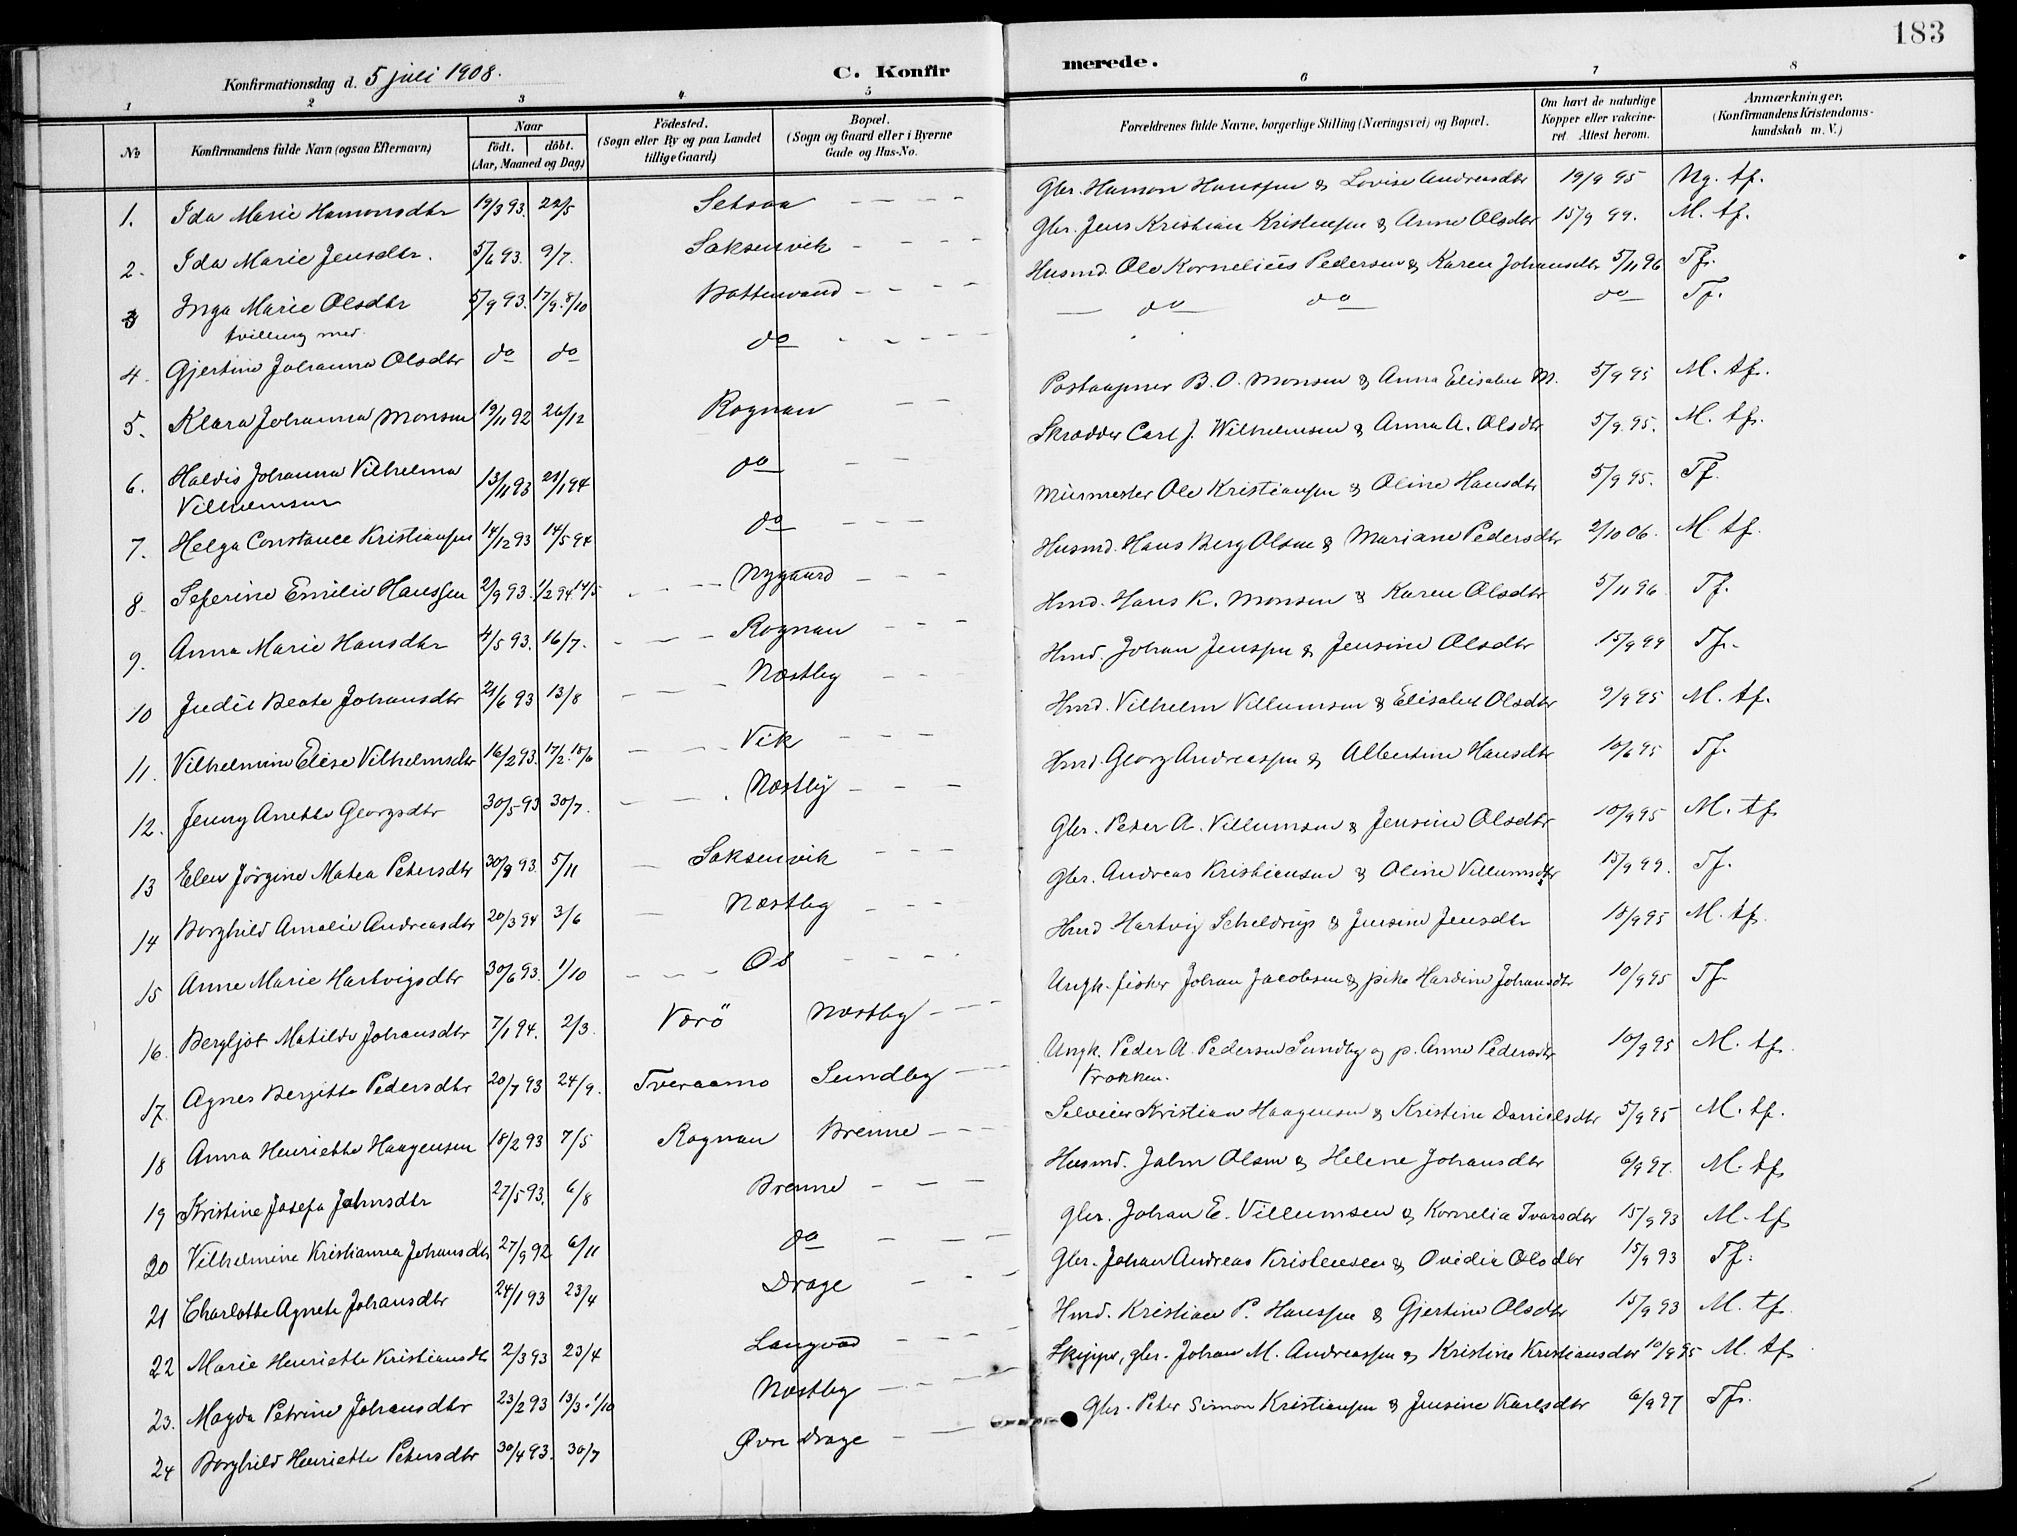 183
Konfirmationsdag d. 5 juli 1908.
C. Konfirmerede.
1 2 3 4 5 6 7 8
No Konfirmandens fulde Navn (ogsaa Efternavn) Naar født. døbt. (Aar, Maaned og Dag) Fødested. (Sogn eller By og paa Landet tillige Gaard) Bopæl. (Sogn og Gaard eller i Byerne Gade og Hus-No. Forældrenes fulde Navne, borgerlige Stilling (Næringsvei) og Bopæl. Om havt de naturlige Kopper eller vakcineret Attest herom. Anmærkninger, (Konfirmandens Kristendomskundskab m. V.)
1. Ida Marie Hamonsdtr 19/3 93. 22/5 Setsaa — — — Gbr. Hamon Hanssen & Lovise Andreasdtr 19/9 95 Ng. tf.
2. Ida Marie Jensdtr. 5/6 93. 9/7. Saksenvik — — — Gbr. Jens Kristian Kristensen & Anne Olsdtr 15/9 99. M. tf.
3 Inga Marie Olsdtr 5/9 93. 17/9. 8/10 Bottenvand — — — Husmd. Ole Kornelius Pedersen & Karen Johansdtr 5/11 96 Tf.
tvilling med
4. Gjertine Johanna Olsdtr do do do — — — do do do Tf.
5. Klara Johanna Monsen 19/11 92 26/12 Rognan — — Postaapner B. O. Monsen & Anna Elisabet M. 5/9 95 M. tf.
6. Haldis Johanna Vilhelma 13/11 93 21/1 94 do — — Skrædder Carl J. Wilhelmsen & Anna A. Olsdtr 5/9. 95. M. tf.
Vilhelmsen
7. Helga Constance Kristiansen 14/12 93 14/5 94 do — — — Murmester Ole Kristiansen & Oline Hansdtr 5/9 95. Tf.
8. Seferine Emilie Hanssen 2/9 93. 1/2 94. 14/5 — — Nygaard — — — Husmd. Hans Berg Olsen & Mariane Pedersdtr 2/10 06. M. tf.
9. Anna Marie Hansdtr 4/5 93. 16/7. — — — Rognan — — — Hmd. Hans K. Monsen & Karen Olsdtr 5/11 96. Tf.
10 Judit Beate Johansdtr 21/6 93 13/8 — — — Næstby Hmd. Johan Jenssen & Jensine Olsdtr 15/9 99 Tf.
11. Vilhelmine Elise Vilhelmsdtr 16/2 93. 17/2. 18/6 — — — Vik — — — Hmd. Vilhelm Villumsen & Elisabet Olsdtr 9/9 95 M. tf.
12. Jenny Anette Georgsdtr 30/5 93 30/7. — — . Næstby — — — Hmd. Georg Andreassen & Albertine Hansdtr 10/6 95 Tf.
13 Elen Jørgine Matea Petersdtr 30/9 93. 5/11 — Saksenvik — — — Gbr. Peter A. Villumsen & Jensine Olsdtr 10/9 95 M. tf
14 Borghild Amalie Andreasdtr 20/3 94 3/6 — Næstby — — — Gbr. Andreas Kristiansen & Oline Villumsdtr 15/9 99. Tf.
15 Anne Marie Hartvigsdtr 30/6 93. 1/10 — — — Os — — — Hmd Hartvig Scheldrup & Jensine Jensdtr 18/9 95 M. tf.
16. Bergljot Matilde Johansdtr 7/1 94. 2/3. Værö Næstby — — — Ungk. fisker Johan Jacobsen & pike Hardine Johansdtr 10/9 95 Tf
17. Agnes Bergitte Pedersdtr 20/7 93 24/9. Tveraamo Sundby — — — Ungk. Peder A. Pedersen Sundby og p. Anne Pedersdtr 10/9 95 M. tf.
18 Anna Henriette Haagensen 18/2 93 7/5 Rognan Brenne — — — Selveier Kristian Haagensen & Kristine Danielsdtr 5/9 95 M. tf.
19 Kristine Josefa Jahnsdtr 27/5 93. 6/8 Brenne — — — Husmd. Jahn Olsen & Helene Johansdtr 6/9 97. M. tf
20 Vilhelmine Kristianna Johansdtr 27/9 92 6/11 do — — — gbr. Johan E. Villumsen & Kornelia Ivarsdtr 15/9 93 M. tf
21 Charlotte Agnete Johansdtr 24/1 93 23/4 Drage — — — Gbr. Johan Andreas Kristensen & Ovidia Olsdtr 15/9 93 Tf.
22 Marie Henriette Kristiansdtr 2/3 93 23/4 Langvad — — — Hmd. Kristian P. Hanssen & Gjertine Olsdtr 15/9 93 M. tf
23. Magda Petrine Johansdtr 23/2 93 13/3. 1/10 Næstby — — — Skipper, gbr. Johan M. Andreassen & Kristine Kristiansdtr 10/9 95 M. tf
24 Borghild Henriette Petersdtr 30/4 93. 30/7 Øvre Drage — — Gbr. Peter Simon Kristiansen & Jensine Karlsdtr 6/9 97 Tf.